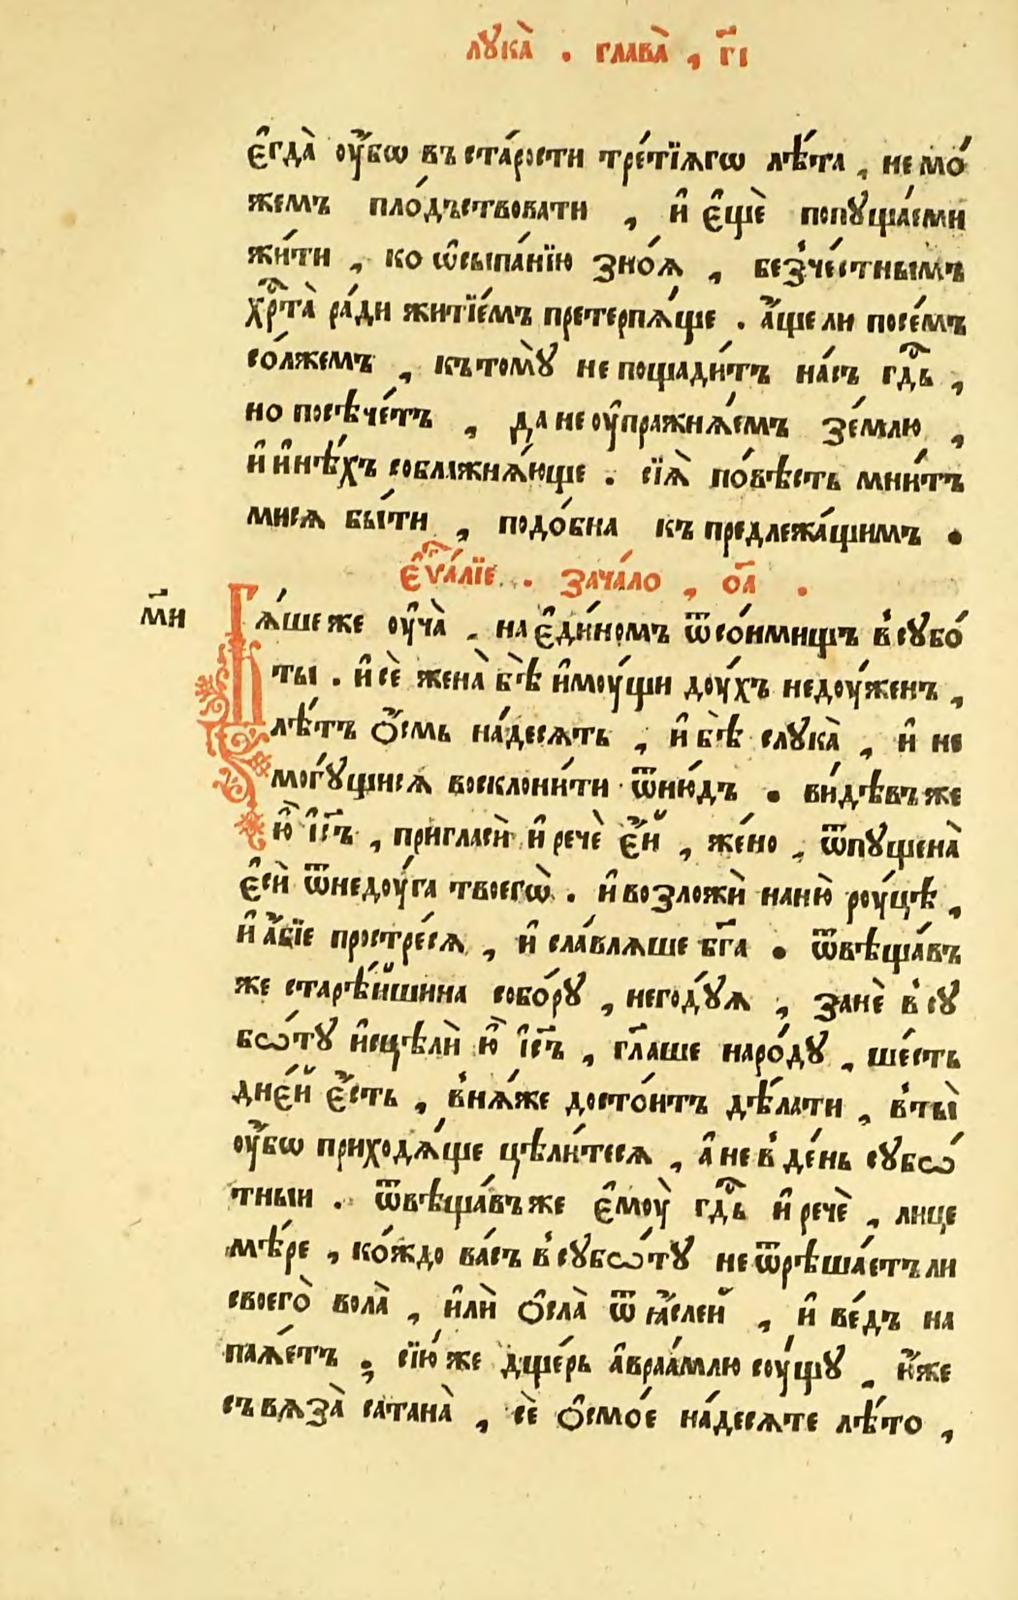 лꙋка̀ . глава̀ , г҃і
є҆гда̀ ᲂу҆́бѡ въ ста́рости тре́тїѧгѡ лѣ́та , не мо́
жемъ пло́дъствовати , и҆ є҆щѐ попꙋща́еми
жи́ти , ко ѡ҆сыпа́нїю зно́ѧ , без̾че́стнымъ
хрⷭ҇та̀ ра́ди житїе́мъ претерпѧ́ще . а҆́ще ли посе́мъ
со́лжемъ , къ томꙋ̀ не пощади́тъ на́съ гдⷭ҇ь ,
но посѣче́тъ , да не ᲂу҆пражнѧ́емъ зе́млю ,
и҆ и҆нѣ́хъ соблажнѧ́юще . сїѧ̀ по́вѣсть мни́тъ
мисѧ бы́ти , подо́бна къ предлежа́щимъ .
є҆ѵⷢ҇а́лїе . зача́ло , ѻ҃а .
м҃и
Бѧ́ше же ᲂу҆ча̀ , на є҆ди́номъ ѿ со́имищъ в̾сꙋбо́
ты . и҆ сѐ жена̀ бѣ̀ и҆мᲂу́щи дᲂу́хъ недᲂу́женъ ,
лѣ́тъ ѻ҆́смь на́десѧть , и҆ бѣ̀ слꙋка̀ , и҆ не
могꙋ́щисѧ восклони́ти ѿню́дъ . ви́дѣвъ же
ю҆̀ і҆с҃ъ , пригласѝ и҆ речѐ є҆́й , же́но , ѿпꙋщена̀
є҆сѝ ѿ недᲂу́га твоегѡ̀ . и҆ возложѝ на ню̀ рᲂу́цѣ ,
и҆ а҆́бїе простре́сѧ , и҆ сла́влѧше бг҃а . ѿвѣща́въ
же старѣ́йшина собо́рꙋ , негодꙋ́ѧ , занѐ в̾сꙋ
бѡ́тꙋ и҆сцѣлѝ ю҆̀ і҆с҃ъ , гл҃аше наро́дꙋ , ше́сть
дне́й є҆́сть , в̾нѧ́же досто́итъ дѣ́лати , в̾ты̀
ᲂу҆́бѡ приходѧ́ще цѣли́тесѧ , а҆ не в̾ де́нь сꙋбѡ́
тныи . ѿвѣща́въ же є҆мᲂу̀ гдⷭ҇ь и҆ речѐ , лице
мѣ́ре , ко́ждо ва́съ в̾сꙋбѡ́тꙋ не ѿрѣша́етъ ли
своего̀ вола̀ , и҆лѝ ѻ҆сла̀ ѿ ꙗ҆́слей , и҆ ве́дъ на
паѧ́етъ ; сїю́ же дще́рь а҆враа́млю сᲂу́щꙋ , ю҆́же
съвѧза̀ сатана̀ , сѐ ѻ҆смо́е на́десѧте лѣ́то ,